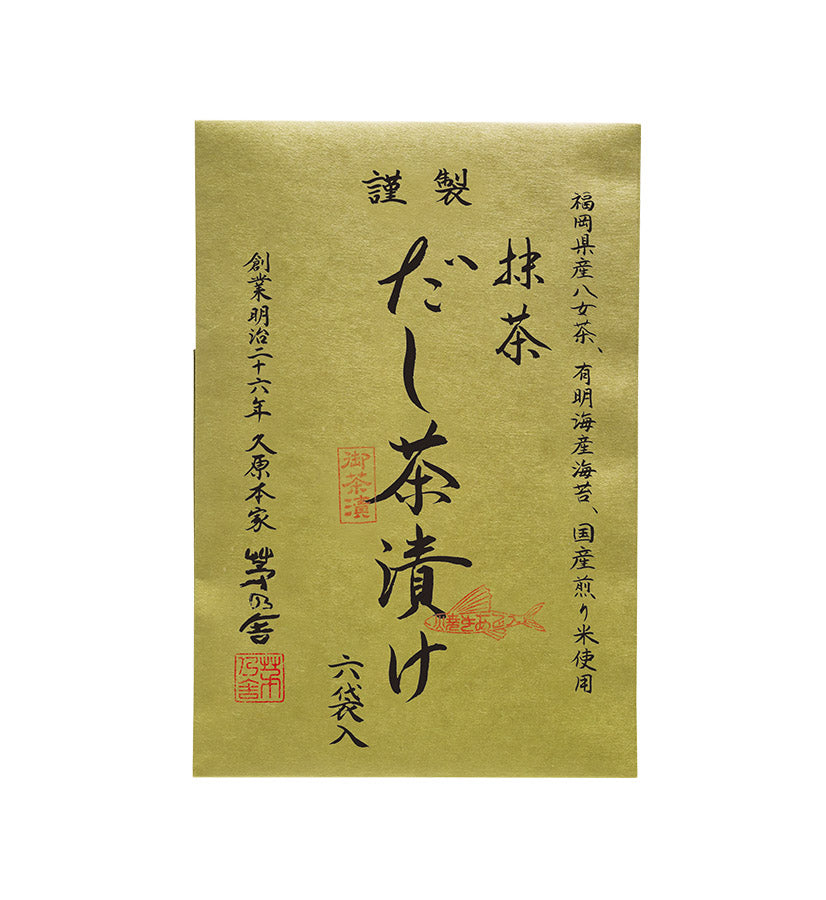 謹製
福岡県産八女茶、有明海産海苔、国産煎り米使用
抹茶
だし茶漬け
焼きあご
御茶漬
六袋入
創業明治二十六年 久原本家 茅乃舎
茅乃舎